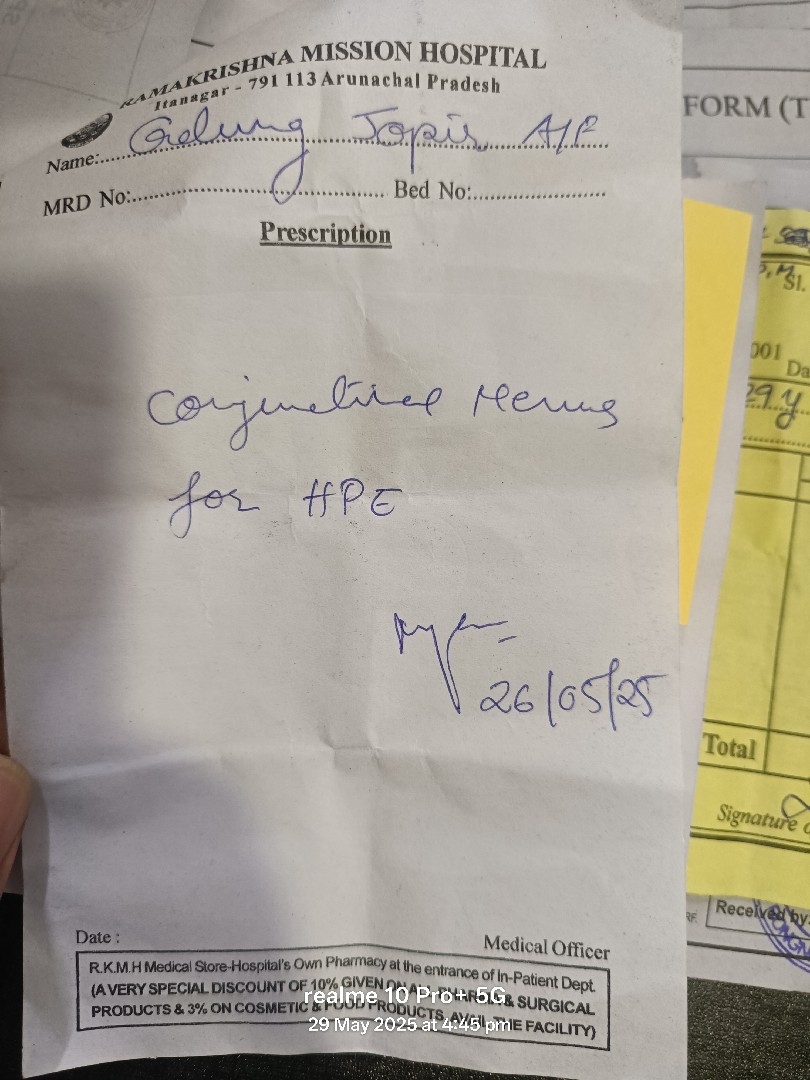 RAMAKRISHNA MISSION HOSPITAL
Itanagar - 791 113 Arunachal Pradesh
Name:
MRD No: Bed No:
Prescription
for HPE
26/05/25
Date : Medical Officer
R.K.M.H Medical Store-Hospital's Own Pharmacy at the entrance of In-Patient Dept.
(A VERY SPECIAL DISCOUNT OF 10% GIVEN & SURGICAL
PRODUCTS & 3% ON COSMETIC & FOOD PRODUCTS, THE FACILITY)
realme 10 Pro+ 5G
29 May 2025 at 4:45 pm
FORM (T
Sl.
001
Da
29 y
Total
Signature o
Received by: